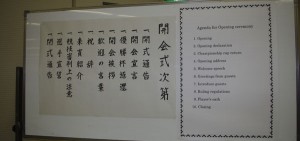 開会式次第
一開式通告
一開会宣言
一優勝杯返還
一開会挨拶
一歓迎の言葉
一祝辞
一来賓紹介
一競技審判上の注意
一選手宣誓
一閉式通告
Agenda For Opening ceremony
1. Opening
2. Opening declaration
3. Championship cup return
4. Opening address
5. Welcome speech
6. Greetings from guests
7. Greetings from guests
8. Rating regulations
9. Player's oath
10. Closing